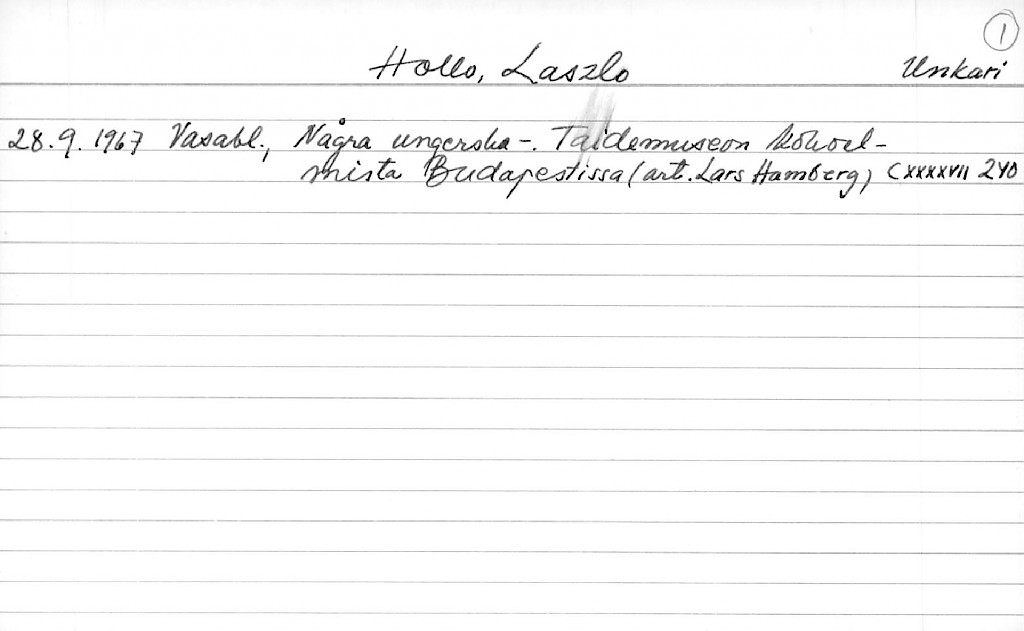 1
Hollo, Laszlo Unkari
28.9.1967 Vasabl., Några ungerska -. Taidemuseon kokoel-
mista Budapestissa (art. Lars Hamberg) CXXXXVII 240